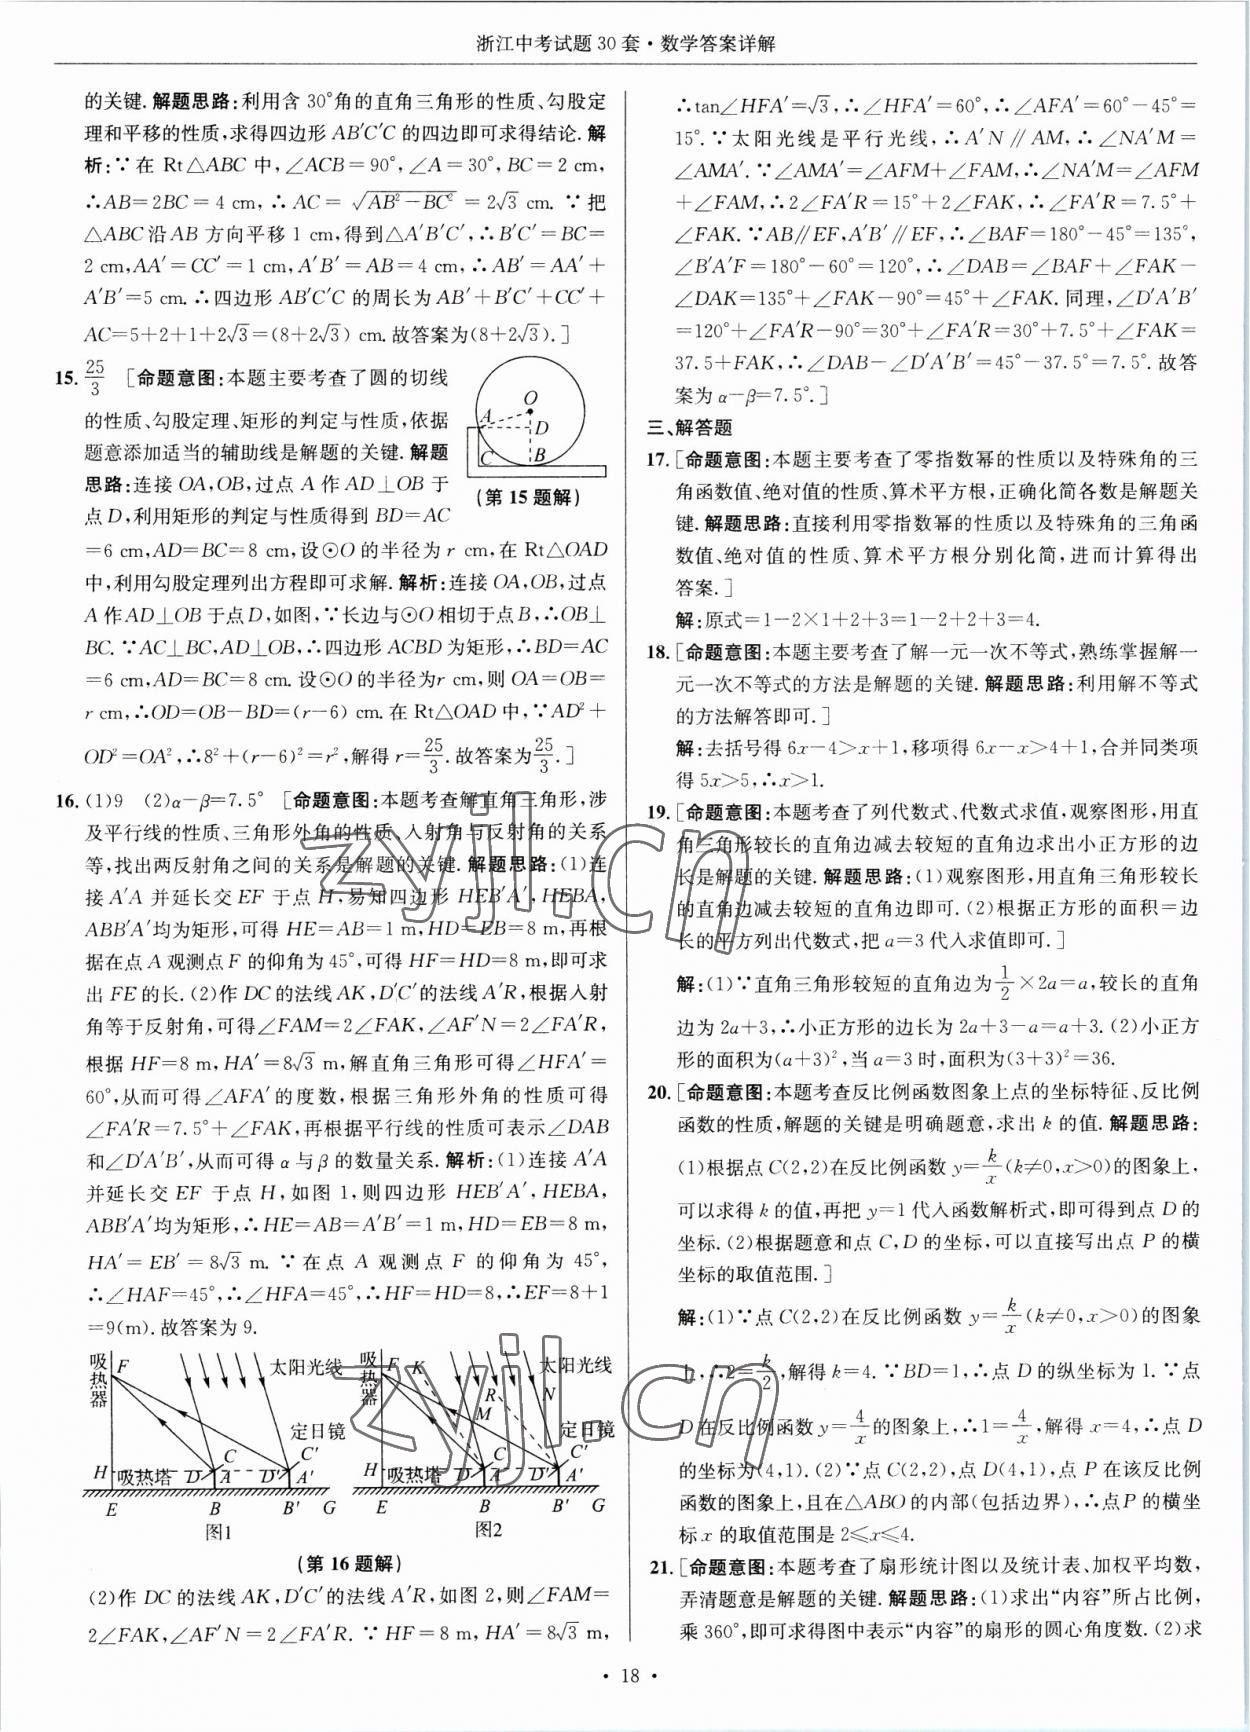 浙江中考试题30套·数学答案详解
的关键.解题思路:利用含30°角的直角三角形的性质、勾股定
理和平移的性质,求得四边形AB′C′C的四边即可求得结论.解
析:∵在Rt△ABC中,∠ACB=90°,∠A=30°,BC=2 cm,
∴AB=2BC=4 cm,∴AC=√(AB²-BC²)=2√3 cm.∵把
△ABC沿AB方向平移1 cm,得到△A′B′C′,∴B′C′=BC=
2 cm,AA′=CC′=1 cm,A′B′=AB=4 cm,∴AB′=AA′+
A′B′=5 cm.∴四边形AB′C′C的周长为AB′+B′C′+CC′+
AC=5+2+1+2√3=(8+2√3) cm.故答案为(8+2√3).]
15. 25/3 [命题意图:本题主要考查了圆的切线
的性质、勾股定理、矩形的判定与性质,依据
题意添加适当的辅助线是解题的关键.解题
思路:连接OA,OB,过点A作AD⊥OB于
点D,利用矩形的判定与性质得到BD=AC
O
A
D
C
B
(第15题解)
=6 cm,AD=BC=8 cm,设⊙O的半径为r cm,在Rt△OAD
中,利用勾股定理列出方程即可求解.解析:连接OA,OB,过点
A作AD⊥OB于点D,如图,∵长边与⊙O相切于点B,∴OB⊥
BC.∵AC⊥BC,AD⊥OB,∴四边形ACBD为矩形,∴BD=AC
=6 cm,AD=BC=8 cm.设⊙O的半径为r cm,则OA=OB=
r cm,∴OD=OB-BD=(r-6) cm.在Rt△OAD中,∵AD²+
OD²=OA²,∴8²+(r-6)²=r²,解得r=25/3.故答案为25/3.]
16.(1)9 (2)α-β=7.5° [命题意图:本题考查解直角三角形,涉
及平行线的性质、三角形外角的性质、入射角与反射角的关系
等,找出两反射角之间的关系是解题的关键.解题思路:(1)连
接A′A并延长交EF于点H,易知四边形HEB′A′,HEBA,
ABB′A′均为矩形,可得HE=AB=1 m,HD=EB=8 m,再根
据在点A观测点F的仰角为45°,可得HF=HD=8 m,即可求
出FE的长.(2)作DC的法线AK,D′C′的法线A′R,根据入射
角等于反射角,可得∠FAM=2∠FAK,∠AF′N=2∠FA′R,
根据HF=8 m,HA′=8√3 m,解直角三角形可得∠HFA′=
60°,从而可得∠AFA′的度数,根据三角形外角的性质可得
∠FA′R=7.5°+∠FAK,再根据平行线的性质可表示∠DAB
和∠D′A′B′,从而可得α与β的数量关系.解析:(1)连接A′A
并延长交EF于点H,如图1,则四边形HEB′A′,HEBA,
ABB′A′均为矩形,∴HE=AB=A′B′=1 m,HD=EB=8 m,
HA′=EB′=8√3 m.∵在点A观测点F的仰角为45°,
∴∠HAF=45°,∴∠HFA=45°,∴HF=HD=8,∴EF=8+1
=9(m).故答案为9.
吸热器 F 太阳光线
定日镜
C C′
H 吸热塔 D A D′ A′
E B B′ G
图1
吸热器 F K 太阳光线
R N
M 定日镜
C C′
H 吸热塔 D A D′ A′
E B B′ G
图2
(第16题解)
(2)作DC的法线AK,D′C′的法线A′R,如图2,则∠FAM=
2∠FAK,∠AF′N=2∠FA′R.∵HF=8 m,HA′=8√3 m,
∴tan∠HFA′=√3,∴∠HFA′=60°,∴∠AFA′=60°-45°=
15°.∵太阳光线是平行光线,∴A′N∥AM,∴∠NA′M=
∠AMA′.∵∠AMA′=∠AFM+∠FAM,∴∠NA′M=∠AFM
+∠FAM,∴2∠FA′R=15°+2∠FAK,∴∠FA′R=7.5°+
∠FAK.∵AB∥EF,A′B′∥EF,∴∠BAF=180°-45°=135°,
∠B′A′F=180°-60°=120°,∴∠DAB=∠BAF+∠FAK-
∠DAK=135°+∠FAK-90°=45°+∠FAK.同理,∠D′A′B′
=120°+∠FA′R-90°=30°+∠FA′R=30°+7.5°+∠FAK=
37.5+FAK,∴∠DAB-∠D′A′B′=45°-37.5°=7.5°.故答
案为α-β=7.5°.]
三、解答题
17.[命题意图:本题主要考查了零指数幂的性质以及特殊角的三
角函数值、绝对值的性质、算术平方根,正确化简各数是解题关
键.解题思路:直接利用零指数幂的性质以及特殊角的三角函
数值、绝对值的性质、算术平方根分别化简,进而计算得出
答案.]
解:原式=1-2×1+2+3=1-2+2+3=4.
18.[命题意图:本题主要考查了解一元一次不等式,熟练掌握解一
元一次不等式的方法是解题的关键.解题思路:利用解不等式
的方法解答即可.]
解:去括号得6x-4>x+1,移项得6x-x>4+1,合并同类项
得5x>5,∴x>1.
19.[命题意图:本题考查了列代数式、代数式求值,观察图形,用直
角三角形较长的直角边减去较短的直角边求出小正方形的边
长是解题的关键.解题思路:(1)观察图形,用直角三角形较长
的直角边减去较短的直角边即可.(2)根据正方形的面积=边
长的平方列出代数式,把a=3代入求值即可.]
解:(1)∵直角三角形较短的直角边为1/2×2a=a,较长的直角
边为2a+3,∴小正方形的边长为2a+3-a=a+3.(2)小正方
形的面积为(a+3)²,当a=3时,面积为(3+3)²=36.
20.[命题意图:本题考查反比例函数图象上点的坐标特征、反比例
函数的性质,解题的关键是明确题意,求出k的值.解题思路:
(1)根据点C(2,2)在反比例函数y=k/x(k≠0,x>0)的图象上,
可以求得k的值,再把y=1代入函数解析式,即可得到点D的
坐标.(2)根据题意和点C,D的坐标,可以直接写出点P的横
坐标的取值范围.]
解:(1)∵点C(2,2)在反比例函数y=k/x(k≠0,x>0)的图象
上,∴2=k/2,解得k=4.∵BD=1,∴点D的纵坐标为1.∵点
D在反比例函数y=4/x的图象上,∴1=4/x,解得x=4,∴点D
的坐标为(4,1).(2)∵点C(2,2),点D(4,1),点P在该反比例
函数的图象上,且在△ABO的内部(包括边界),∴点P的横坐
标x的取值范围是2≤x≤4.
21.[命题意图:本题考查了扇形统计图以及统计表、加权平均数,
弄清题意是解题的关键.解题思路:(1)求出“内容”所占比例,
乘360°,即可求得图中表示“内容”的扇形的圆心角度数.(2)求
·18·
zyjl.cn
zyjl.cn